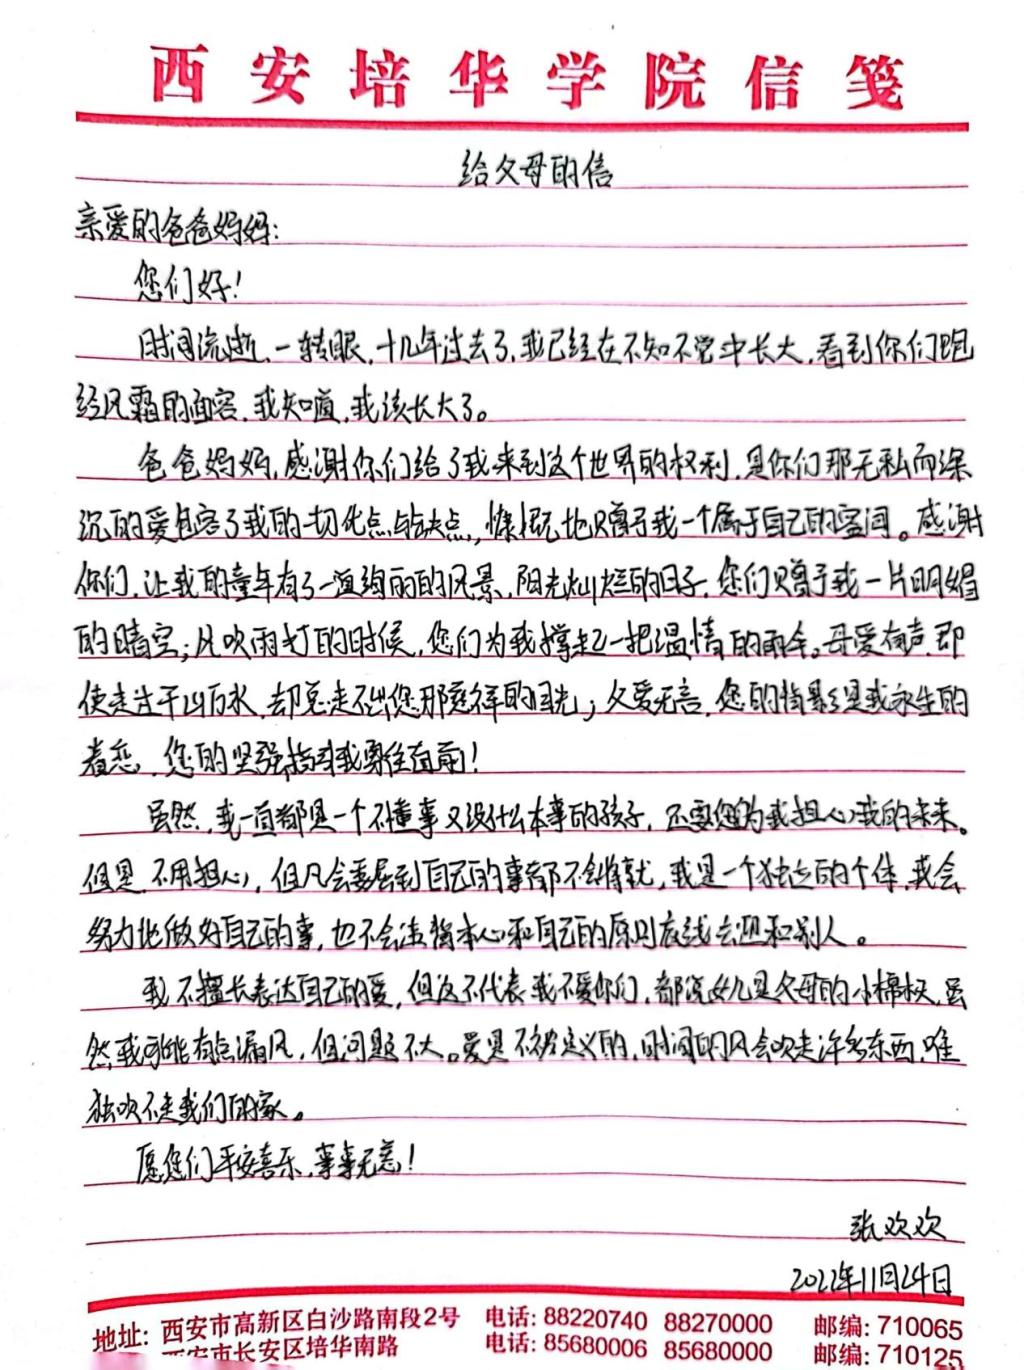 西安培华学院信笺
给父母的信
亲爱的爸爸妈妈:
您们好!
时间流逝,一转眼,十几年过去了,我已经在不知不觉中长大,看到你们饱
经风霜的面容,我知道,我该长大了。
爸爸妈妈,感谢你们给了我来到这个世界的权利,是你们那无私而深
沉的爱包容了我的一切优点与缺点,慷慨地赠予我一个属于自己的空间。感谢
你们,让我的童年有了一道绚丽的风景,阳光灿烂的日子,您们赠予我一片明媚
的晴空;风吹雨打的时候,您们为我撑起一把温情的雨伞。母爱有声,即
使走过千山万水,却总走不出您那慈祥的目光;父爱无言,您的背影是我永生的
着恋,您的坚强指引我勇往直前!
虽然,我一直都是一个不懂事又没什么本事的孩子,还要您为我担心我的未来。
但是,不用担心,但凡会委屈到自己的事都不会将就,我是一个独立的个体,我会
努力地做好自己的事,也不会违背本心和自己的原则底线去迎和别人。
我不擅长表达自己的爱,但这不代表我不爱你们,都说女儿是父母的小棉袄,虽
然我可能有点漏风,但问题不大。爱是不被定义的,时间的风会吹走许多东西,唯
独吹不走我们的家。
愿您们平安喜乐,事事无恙!
张欢欢
2022年11月24日
地址: 西安市高新区白沙路南段2号 电话: 88220740 88270000 邮编: 710065
西安市长安区培华南路 电话: 85680006 85680000 邮编: 710125